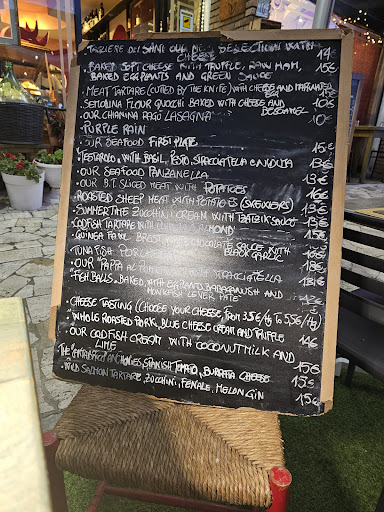 TAGLIERE DEI SANTI OUR MEAT SELECTION WITH CHEESE 14€
BAKED SOFT CHEESE WITH TRUFFLE, RAW HAM, 15€
BAKED EGGPLANTS AND GREEN SAUCE
• MEAT TARTARE (CUTTED BY THE KNIFE) WITH CHEESE AND MARINATED EGG 16€
• SEMOLINA FLOUR GNOCCHI BAKED WITH CHEESE AND BESCIAMEL 10€
• OUR CHIANINA RAGÙ LASAGNA 10€
PURPLE RAIN
• OUR SEAFOOD FIRST PLATE 15€
• TESTAROLO, WITH BASIL PESTO, STRACCIATELLA E NDUJA 13€
• OUR SEAFOOD PANZANELLA 13€
• OUR B.T SLICED MEAT WITH POTATOES 16€
ROASTED SHEEP MEAT WITH POTATOES (SKEWERS) 13€
• SUMMERTIME ZUCCHINI CREAM WITH TZATZIKI SAUCE 13€
CODFISH TARTARE WITH ALMOND 15€
• GUINEA FOWL BREAST WITH CHOCOLATE SAUCE WITH BLACK GARLIC 16€
TUNA FISH 18€
• OUR "PAPPA AL POMODORO" WITH STRACIATELLA 13€
• FISH BALLS, BAKED WITH EGGPLANTS BABAGANUSH AND
MONKFISH LEVER PATÈ
• CHEESE TASTING (CHOOSE YOUR CHEESE, FROM 3,5€/Hg TO 5,5€/Hg)
• WHOLE ROASTED PORK, BLUE CHEESE CREAM AND TRUFFLE 14€
• OUR CODFISH CREAM WITH COCONUT MILK AND
LIME 15€
THE ANCHOVIES, SPANISH TOMATO, BURRATA CHEESE 15€
• WILD SALMON TARTARE, ZUCCHINI, FENALE, MELON GIN 15€